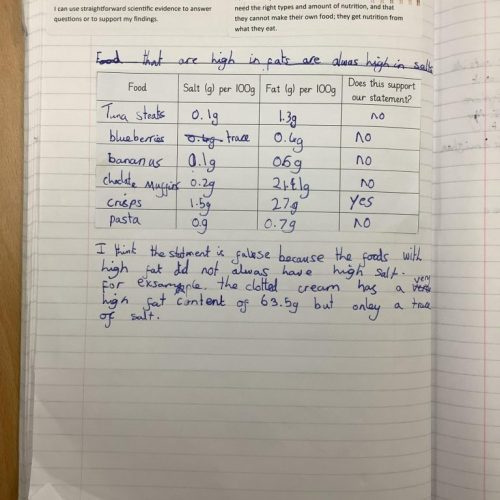 I can use straightforward scientific evidence to answer
questions or to support my findings.
need the right types and amount of nutrition, and that
they cannot make their own food; they get nutrition from
what they eat.
Food that are high in fats are alwas high in salts
Food Salt (g) per 100g Fat (g) per 100g Does this support our statement?
Tuna steaks 0.1g 1.3g no
blueberries trace 0.6g no
bananas 0.1g 06g no
choclate muffins 0.2g no
crisps 1.5g 27g Yes
pasta 0g 0.7g no
I think the statment is falese because the foods with
high fat did not alwas have high salt.
for exsarmple. the clotted cream has a very
high fat content of 63.5g but onley a trace
of salt.